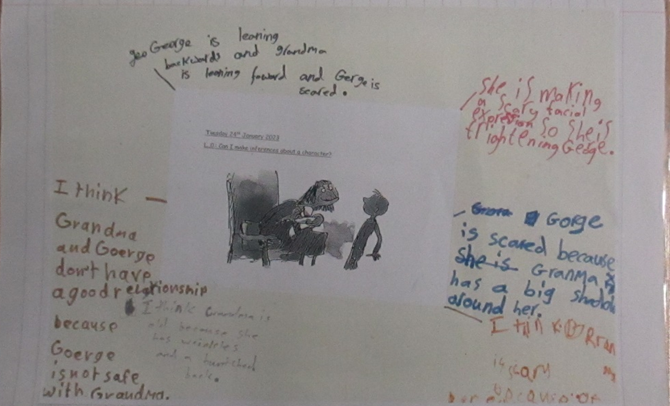 geo George is leaning
backwards and grandma
is leaning foward and Gerge is
scared.
she is making
a scary facial
expression so she is
frightening Gedge.
Tuesday 24th January 2023
L.O: Can I make inferences about a character?
I think
Grandma
and Goerge
don't have
a good relationship
because
Goerge
is not safe
with Grandma.
I think Grandma is
old because she
has wrinkles
and a hunched
back.
Gorge
is scared because
she is Granma
has a big shadow
around her.
I think
is scary
because of